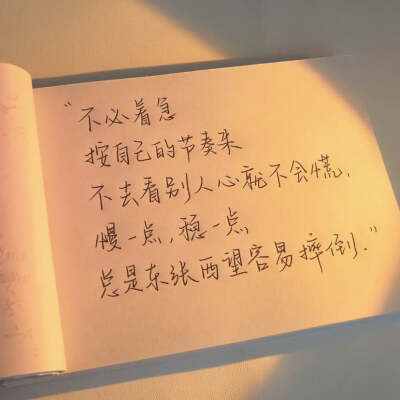 “不必着急
按自己的节奏来
不去看别人心就不会慌，
慢一点，稳一点
总是东张西望容易摔倒.”